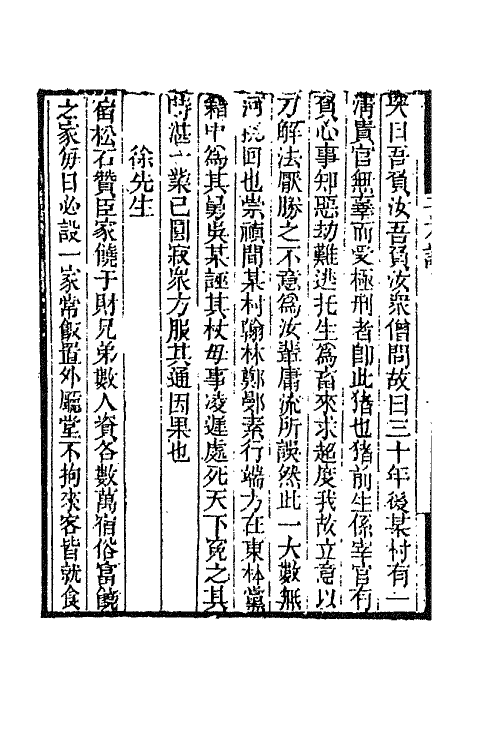 哭曰吾負汝吾負汝衆僧問故曰三十年後某村有一
淸貴官無辜而受極刑者卽此猪也猪前生係宰官有
負心事知惡劫難逃托生爲畜來求超度我故立意以
刀解法厭勝之不意爲汝輩庸流所誤然此一大數無
可挽回也崇禎間某村翰林鄭鄤素行端方在東林黨
籍中爲其舅吳某誣其杖母事凌遲處死天下寃之其
時湛一業已圓寂衆方服其通因果也
徐先生
宿松石贊臣家饒于財兄弟數人資各數萬宿俗富饒
之家每日必設一家常飯置外廳堂不拘來客皆就食